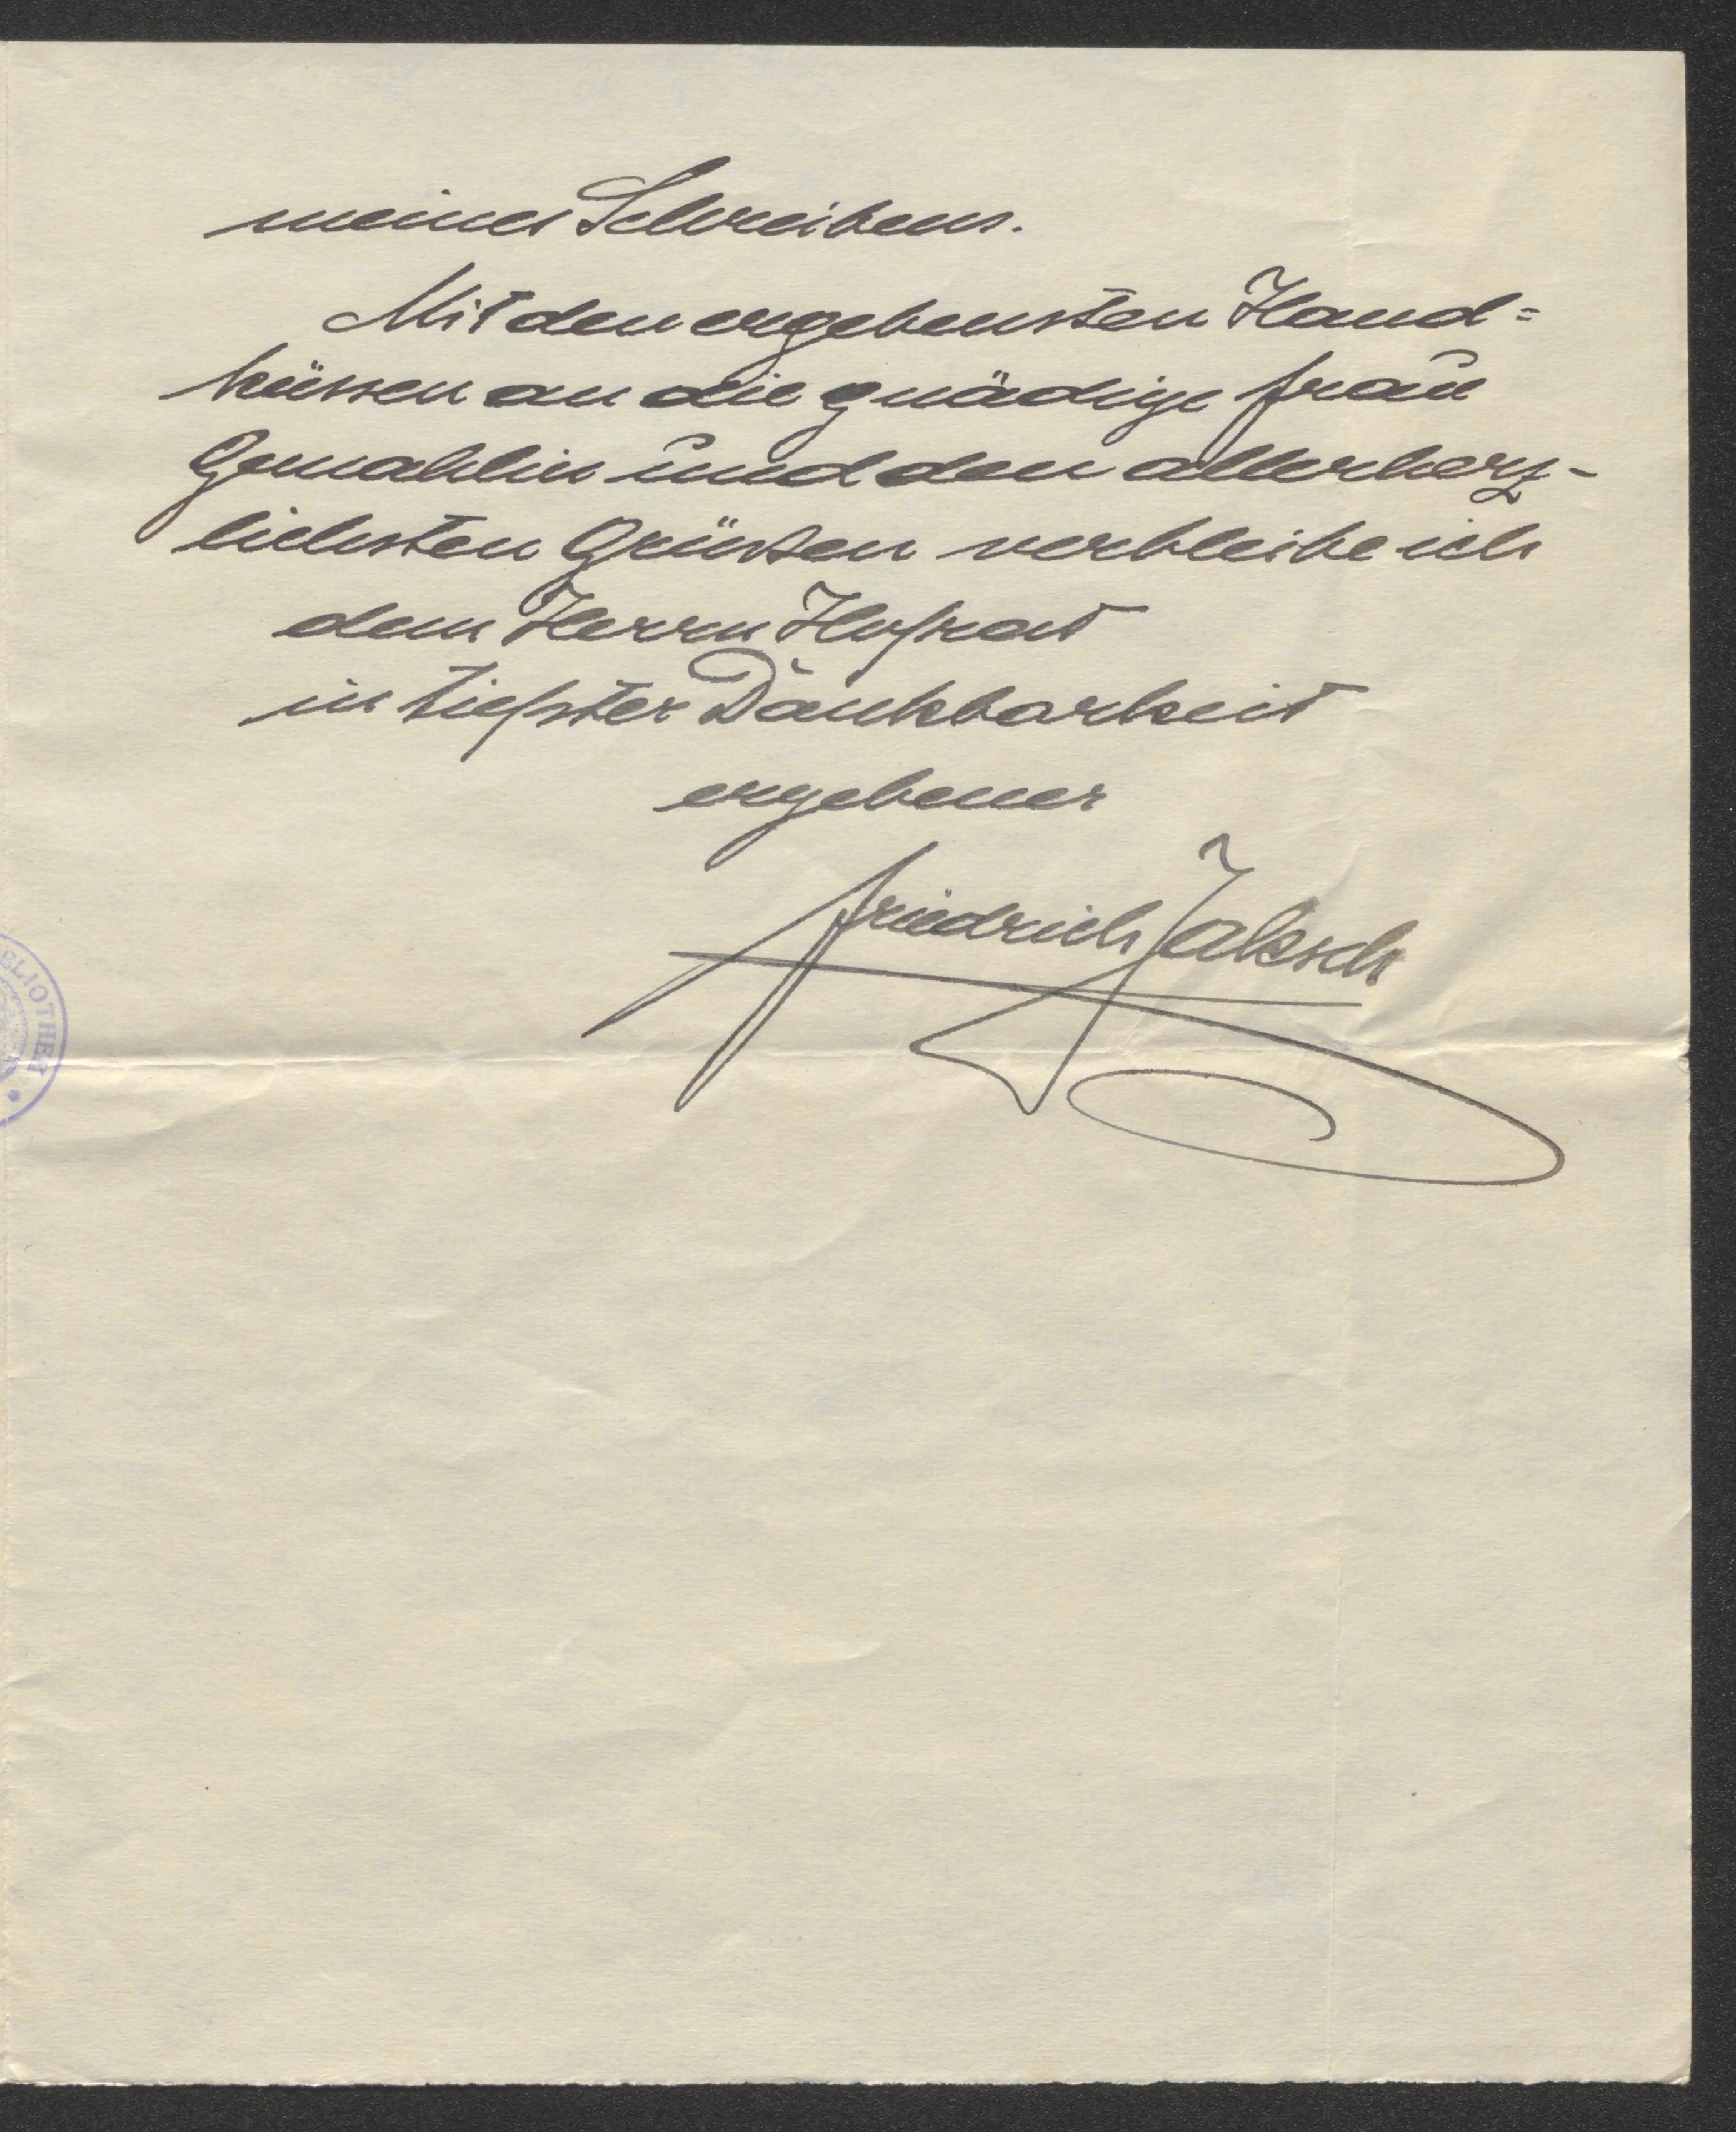 meines Schreibens.
Mit den ergebensten Hand=
küssen an die gnädige Frau
Gemahlin und den allerherz-
lichsten Grüssen verbleibe ich
dem Herrn Hofrat
in tiefster Dankbarkeit
ergebener
Friedrich Jaksch
BLIOTHEK